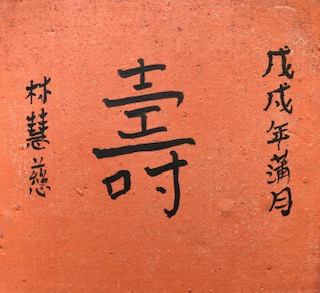 戊戌年蒲月
壽
林慧慈